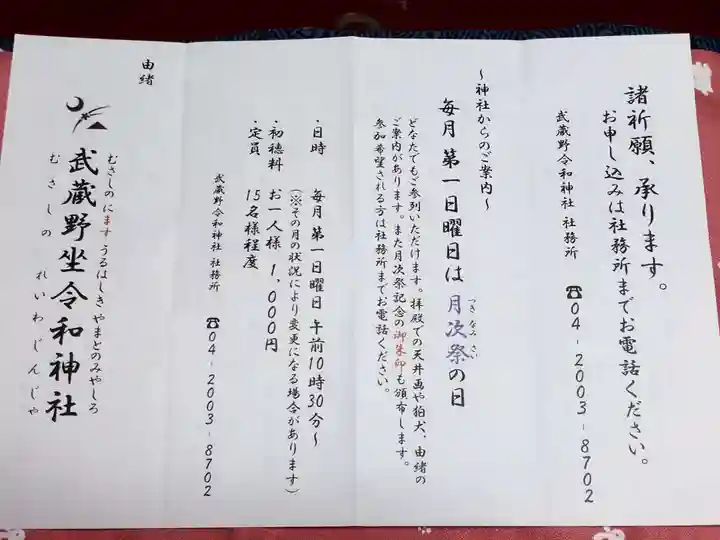 諸祈願、承ります。
お申し込みは社務所までお電話ください。
武蔵野令和神社 社務所 ☎04-2003-8702
～神社からのご案内～
毎月 第一日曜日は 月次祭の日
つき なみ さい
どなたでもご参列いただけます。拝殿での天井画や狛犬、由緒の
ご案内があります。また月次祭記念の御朱印も頒布します。
参加希望される方は社務所までお電話ください。
・日時 毎月 第一日曜日 午前10時30分～
（※その月の状況により変更になる場合があります）
・初穂料 お一人様 1,000円
・定員 15名様程度
武蔵野令和神社 社務所 ☎04-2003-8702
由緒
むさしのにます うるはしき やまとのみやしろ
武蔵野坐令和神社
むさしの れいわじんじゃ